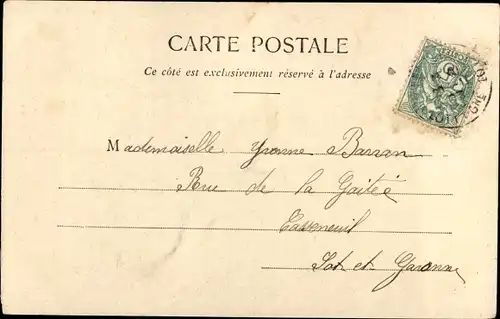 CARTE POSTALE
Ce côté est exclusivement réservé à l'adresse
Mademoiselle Yvonne Barran
Rue de la Gaitée
Casseneuil
Lot et Garonne